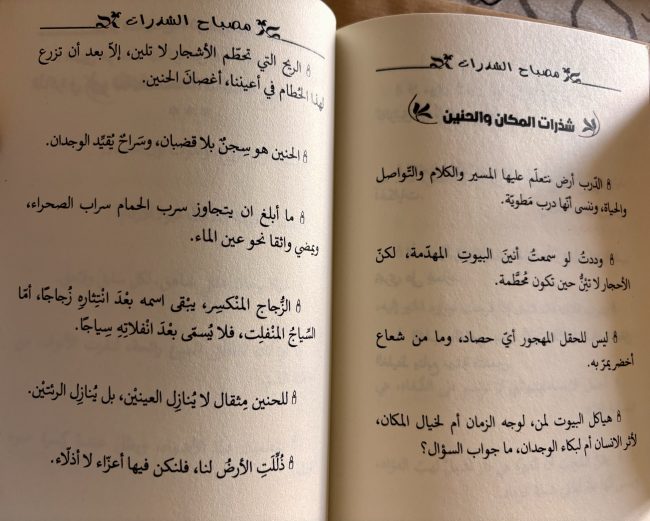 مصباح الشذرات
شذرات المكان والحنين
الدّرب أرض نتعلّم عليها المسير والكلام والتّواصل
والحياة، وننسى أنّها درب مَطويّة.
وددتُ لو سمعتُ أنينَ البيوتِ المهدّمة، لكنّ
الأحجار لا تئِنُّ حين تكون مُحطَّمة.
ليس للحقل المهجور أيّ حصاد، وما من شعاع
أخضر يمرّ به.
هياكل البيوت لمن، لوجه الزمان أم لخيال المكان،
لأثر الانسان أم لبكاء الوجدان، ما جواب السؤال؟
مصباح الشذرات
الريح التي تحطّم الأشجار لا تلين، إلاّ بعد أن تزرع
لهذا الحُطام في أعيننا، أغصانَ الحنين.
الحنين هو سِجنٌ بلا قضبان، وسَراحٌ يُقيِّد الوجدان.
ما أبلغ ان يتجاوز سرب الحمام سراب الصحراء،
ويمضي واثقا نحو عين الماء.
الزُّجاج المنْكسِر، يبْقى اسمه بعْدَ انْتِثارِهِ زُجاجًا، أمّا
السِّياجُ المنْفلِت، فلا يُسمّى بعْدَ انْفلاتِهِ سِياجًا.
للحنين مِثقال لا يُنازِل العينيْن، بل يُنازِل الرئتيْن.
ذُلِّلَتِ الأرضُ لنا، فلنكن فيها أعزّاء لا أذلّاء.